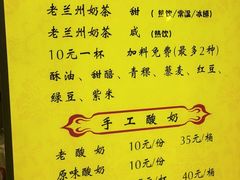 老兰州奶茶 甜 (热饮/常温/冰镇)
老兰州奶茶 咸 (热饮)
10元一杯 加料免费(最多2种)
酥油、甜醅、青稞、藜麦、红豆、
绿豆、紫米
手工酸奶
老酸奶 10元/份 35元/桶
原味酸奶 10元/份 40元/桶